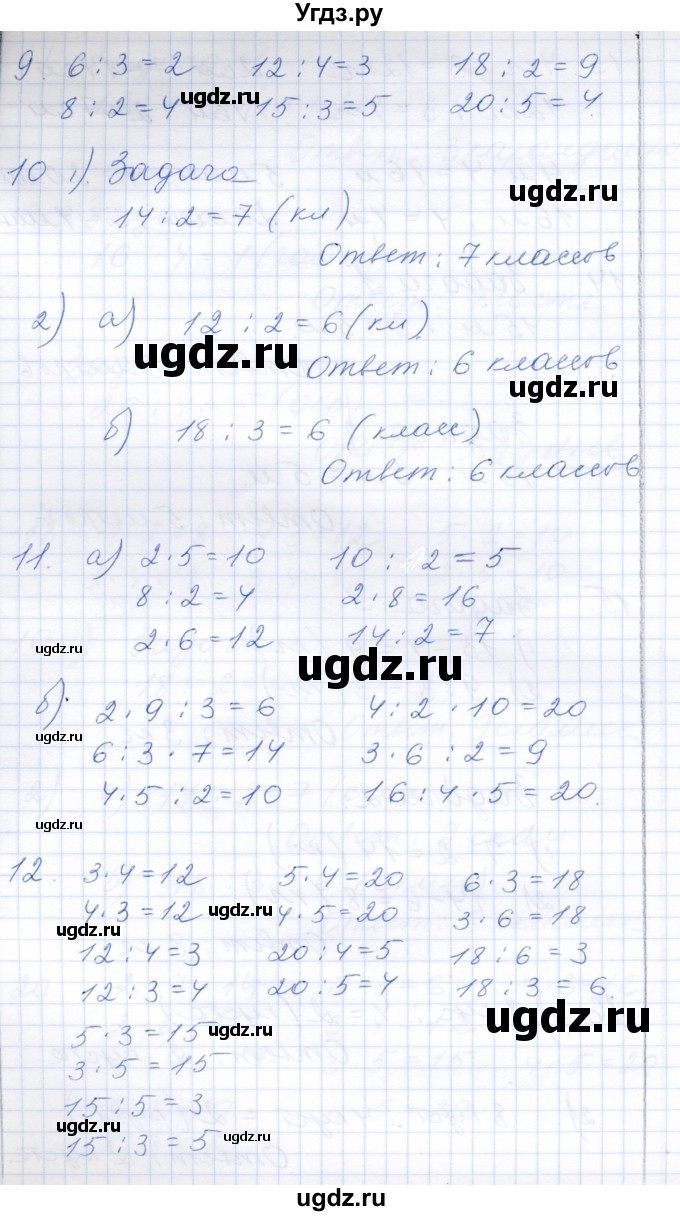 Угдз.ру
9. 6 : 3 = 2 12 : 4 = 3 18 : 2 = 9
8 : 2 = 4 15 : 3 = 5 20 : 5 = 4.
ugdz.ru
10 1) Задача
ugdz.ru
14 : 2 = 7 (кл)
Ответ: 7 классов
ugdz.ru
2) а) 12 : 2 = 6 (кл)
ugdz.ru
Ответ: 6 классов
ugdz.ru
б) 18 : 3 = 6 (класс)
Ответ: 6 классов
11. а) 2 · 5 = 10 10 : 2 = 5
8 : 2 = 4 2 · 8 = 16
2 · 6 = 12 14 : 2 = 7
ugdz.ru
ugdz.ru
б) 2 · 9 : 3 = 6 4 : 2 · 10 = 20
ugdz.ru
6 : 3 · 7 = 14 3 · 6 : 2 = 9
4 · 5 : 2 = 10 16 : 4 · 5 = 20.
ugdz.ru
12. 3 · 4 = 12 5 · 4 = 20 6 · 3 = 18
4 · 3 = 12 4 · 5 = 20 3 · 6 = 18
ugdz.ru ugdz.ru
12 : 4 = 3 20 : 4 = 5 18 : 6 = 3
12 : 3 = 4 20 : 5 = 4 18 : 3 = 6.
ugdz.ru
5 · 3 = 15
ugdz.ru
3 · 5 = 15
15 : 5 = 3
ugdz.ru
15 : 3 = 5
ugdz.ru
ugdz.ru